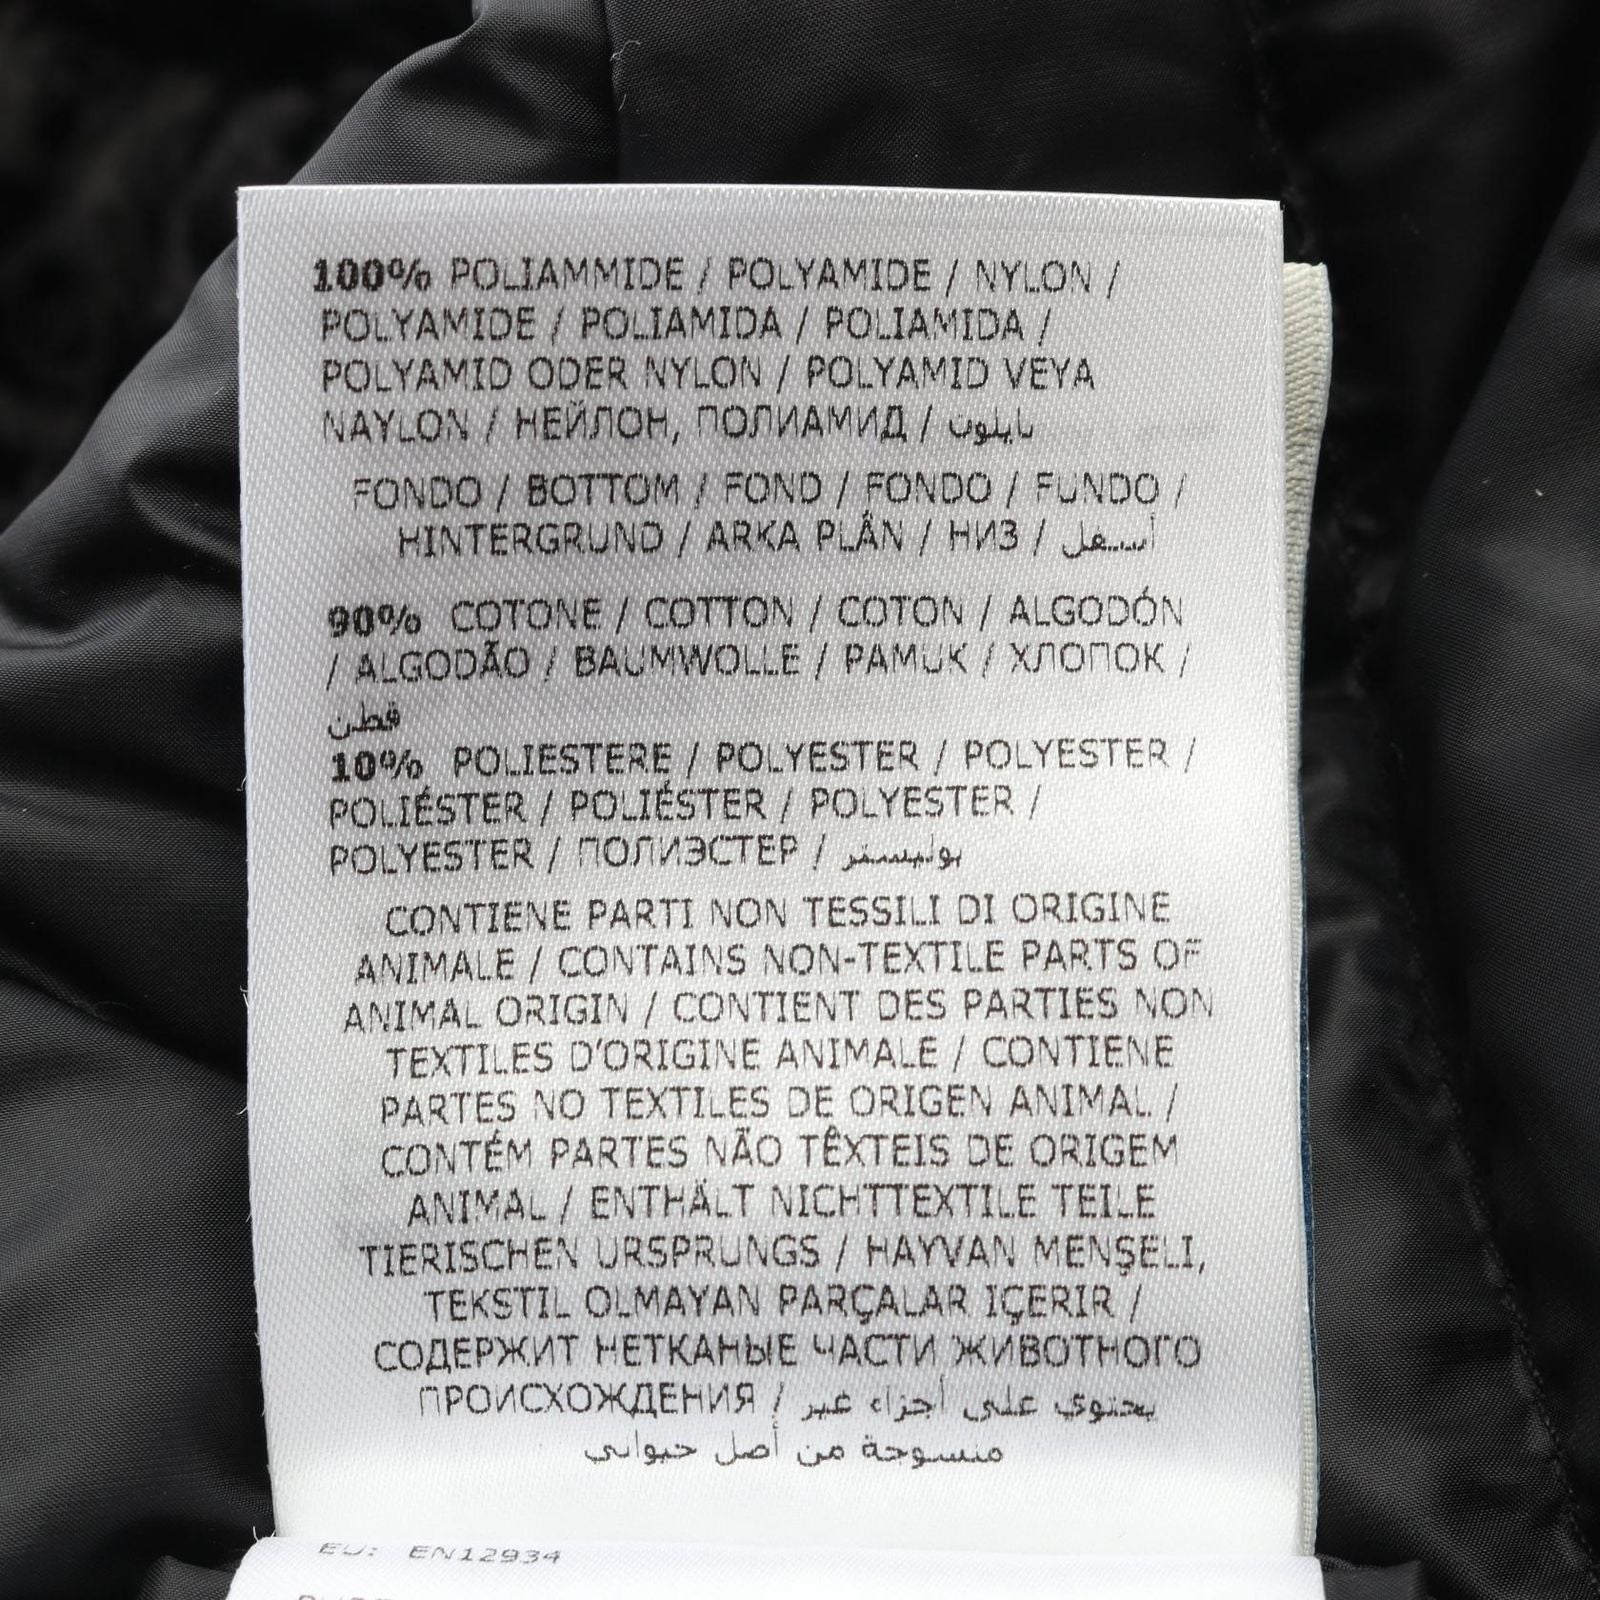 100% POLIAMMIDE / POLYAMIDE / NYLON /
POLYAMIDE / POLIAMIDA / POLIAMIDA /
POLYAMID ODER NYLON / POLYAMID VEYA
NAYLON / НЕЙЛОН, ПОЛИАМИД / نايلون
FONDO / BOTTOM / FOND / FONDO / FUNDO /
HINTERGRUND / ARKA PLÂN / НИЗ / أسفل
90% COTONE / COTTON / COTON / ALGODÓN
/ ALGODÃO / BAUMWOLLE / PAMUK / ХЛОПОК /
قطن
10% POLIESTERE / POLYESTER / POLYESTER /
POLIÉSTER / POLIÉSTER / POLYESTER /
POLYESTER / ПОЛИЭСТЕР / بوليستر
CONTIENE PARTI NON TESSILI DI ORIGINE
ANIMALE / CONTAINS NON-TEXTILE PARTS OF
ANIMAL ORIGIN / CONTIENT DES PARTIES NON
TEXTILES D'ORIGINE ANIMALE / CONTIENE
PARTES NO TEXTILES DE ORIGEN ANIMAL /
CONTÉM PARTES NÃO TÊXTEIS DE ORIGEM
ANIMAL / ENTHÄLT NICHTTEXTILE TEILE
TIERISCHEN URSPRUNGS / HAYVAN MENŞELİ,
TEKSTIL OLMAYAN PARÇALAR IÇERIR /
СОДЕРЖИТ НЕТКАНЫЕ ЧАСТИ ЖИВОТНОГО
ПРОИСХОЖДЕНИЯ / يحتوي على أجزاء غير
منسوجة من أصل حيواني
EU: EN12934